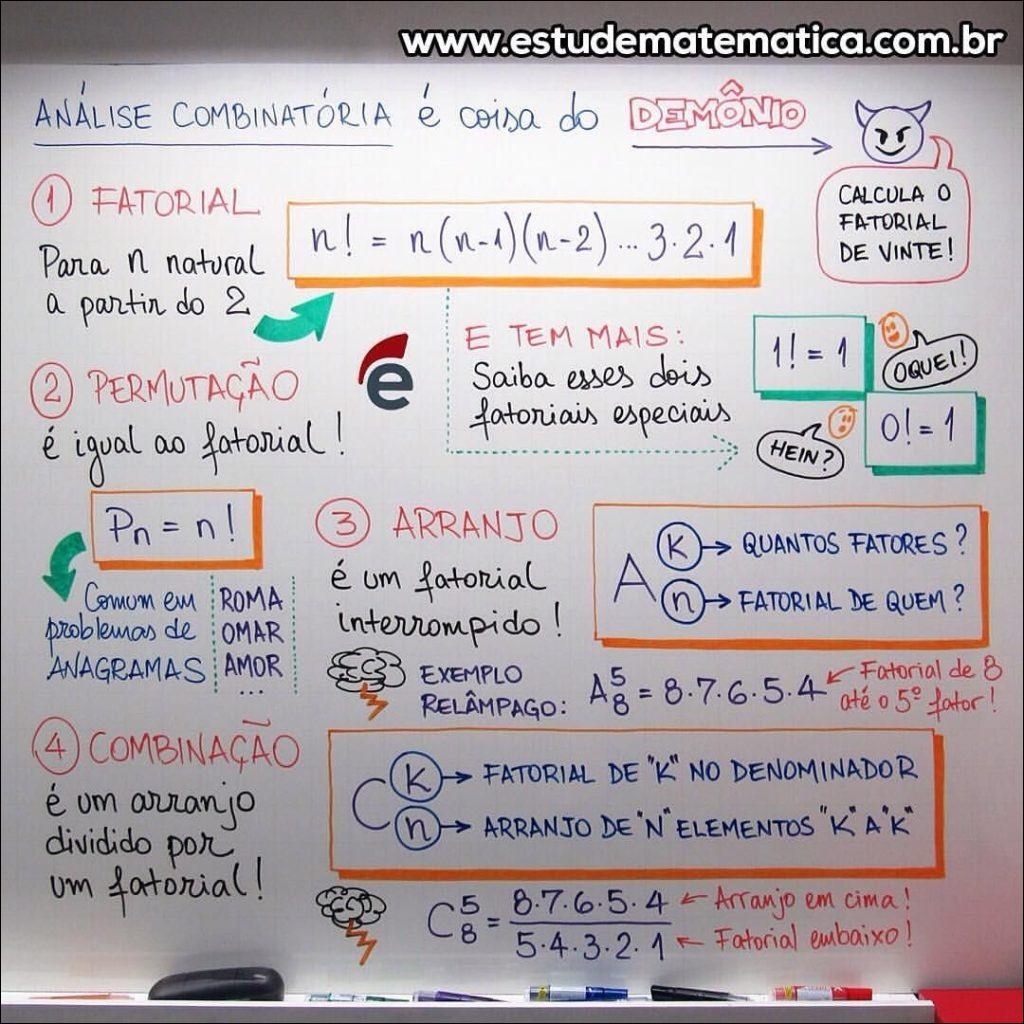 www.estudematematica.com.br
ANÁLISE COMBINATÓRIA é coisa do DEMÔNIO
CALCULA O
FATORIAL
DE VINTE!
1 FATORIAL
Para n natural
a partir do 2
n! = n(n-1)(n-2)...3·2·1
E TEM MAIS:
Saiba esses dois
fatoriais especiais
1! = 1
OQUEI!
0! = 1
HEIN?
e
2 PERMUTAÇÃO
é igual ao fatorial!
Pn = n!
Comum em
problemas de
ANAGRAMAS
ROMA
OMAR
AMOR
...
3 ARRANJO
é um fatorial
interrompido!
A
K → QUANTOS FATORES?
n → FATORIAL DE QUEM?
EXEMPLO
RELÂMPAGO:
A⁵₈ = 8·7·6·5·4
← Fatorial de 8
até o 5º fator!
4 COMBINAÇÃO
é um arranjo
dividido por
um fatorial!
C
K → FATORIAL DE "K" NO DENOMINADOR
n → ARRANJO DE "N" ELEMENTOS "K" A "K"
C⁵₈ =
8·7·6·5·4 ← Arranjo em cima!
5·4·3·2·1 ← Fatorial embaixo!